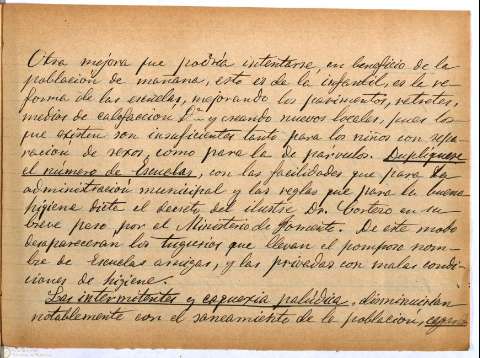 Otra mejora que podría intentarse, en beneficio de la
poblacion de mañana, esto es de la infantil, es la re-
forma de las escuelas, mejorando los pavimentos, retretes,
medios de calefaccion &ª y creando nuevos locales, pues los
que existen son insuficientes tanto para los niños con sepa-
racion de sexos, como para la de párvulos. Dupliquese
el numero de Escuelas, con las facilidades que para la
administracion municipal y las reglas que para la buena
higiene dicta el decreto del ilustre Dr. Cortezo en su
breve paso por el Ministerio de Fomento. De este modo
desapareceran los tugurios que llevan el pomposo nom-
bre de Escuelas amigas, y las privadas con malas condi-
ciones de higiene.
Las intermitentes y caquexia palúdica, disminuirían
notablemente con el saneamiento de la poblacion,